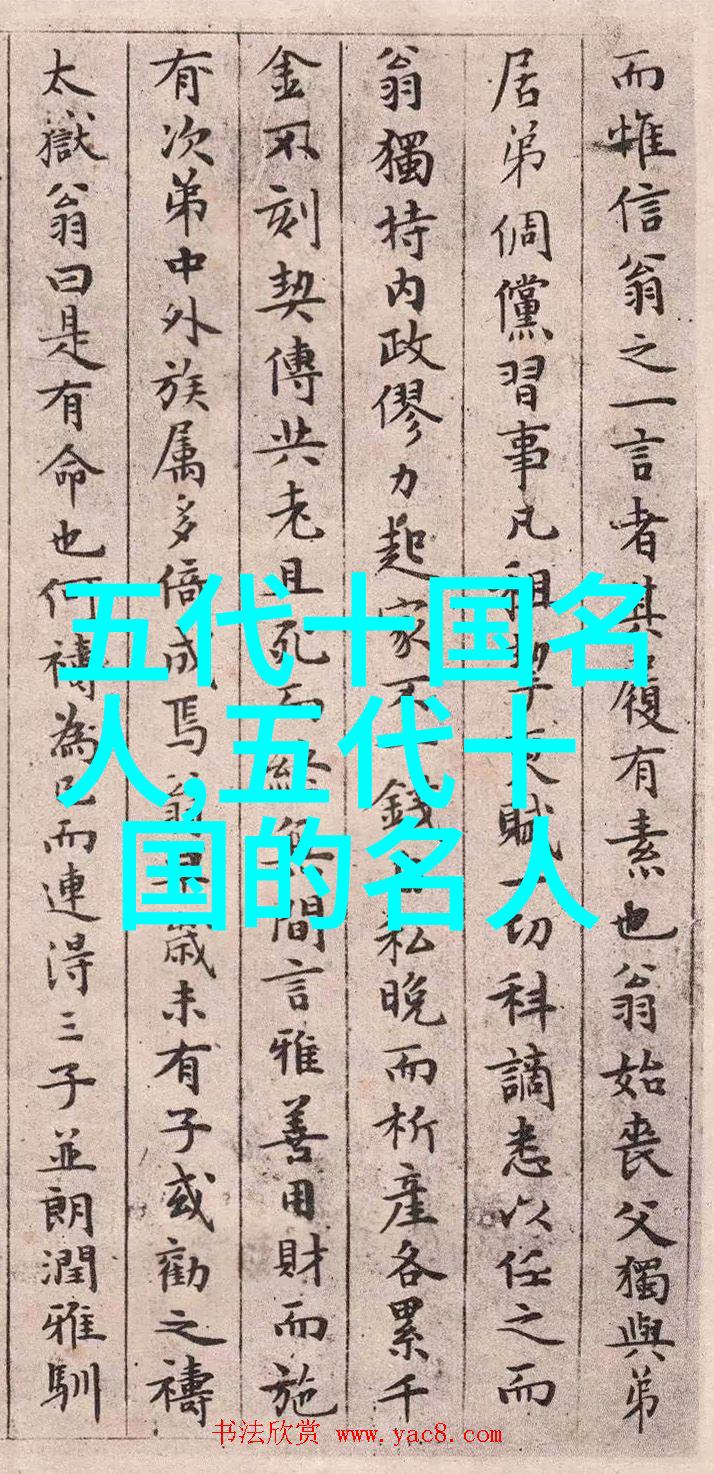 而惟信翁之一言者其履有素也翁始喪父獨與弟
居弟倜儻習事凡租賦一切科謫悉以任之而
翁獨持内政僇力起家不錢私晚而析產各累千
金不刻契傳共老且死而終無間言雅善用財而施
有次第中外族属多倍成焉翁歲未有子或勸之禱
太嶽翁曰是有命也何禱為已而連得三子並朗潤雅馴
五代十国名
人,五代十
国的名人
书法欣赏 www.yac8.com